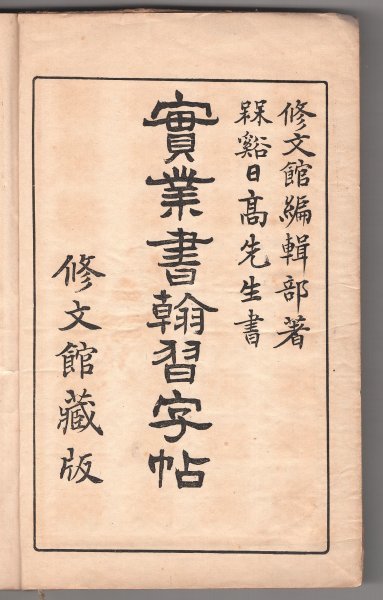 修文館編輯部著
槑谿日髙先生書
實業書翰習字帖
修文館藏版